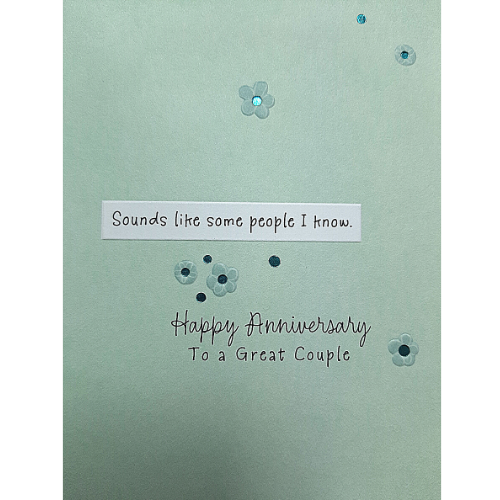 Sounds like some people I know.
Happy Anniversary
To a Great Couple